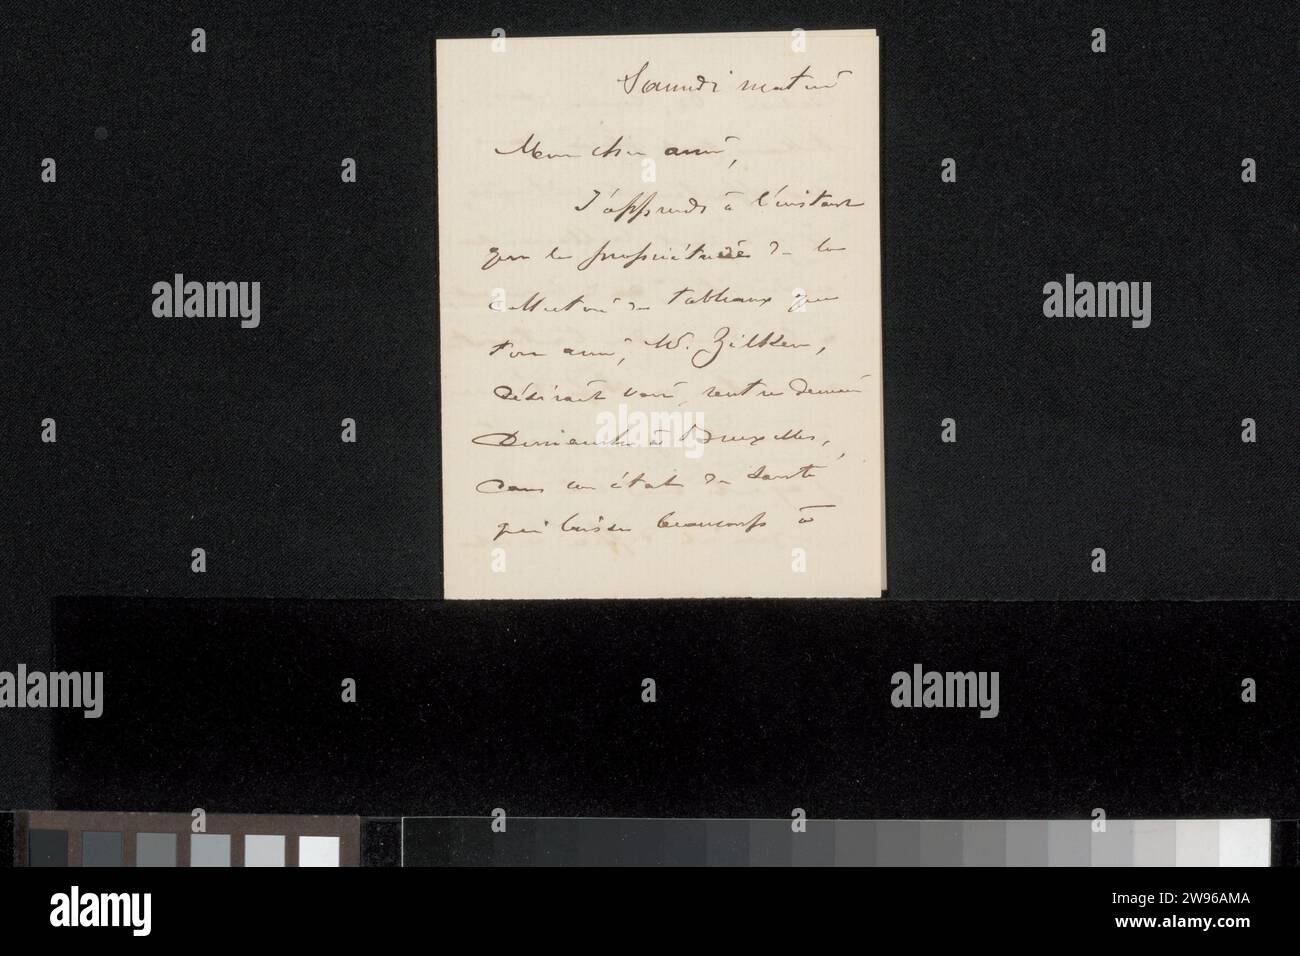 Samedi matin
Mon cher ami,
J'apprends à l'instant
que le propriétaire de la
collection de tableaux que
ton ami, M. Zilken,
désirait voir, rentre demain
Dimanche à Bruxelles,
dans un état de santé
qui laisse beaucoup à
alamy
Image ID: 2W96AMA
www.alamy.com